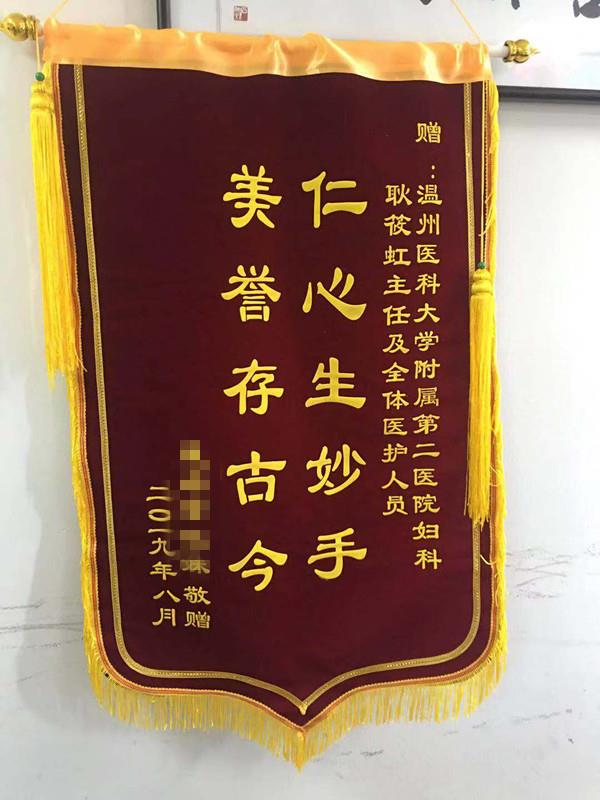 赠：温州医科大学附属第二医院妇科
耿筱虹主任及全体医护人员
仁心生妙手
美誉存古今
敬赠
二〇一九年八月